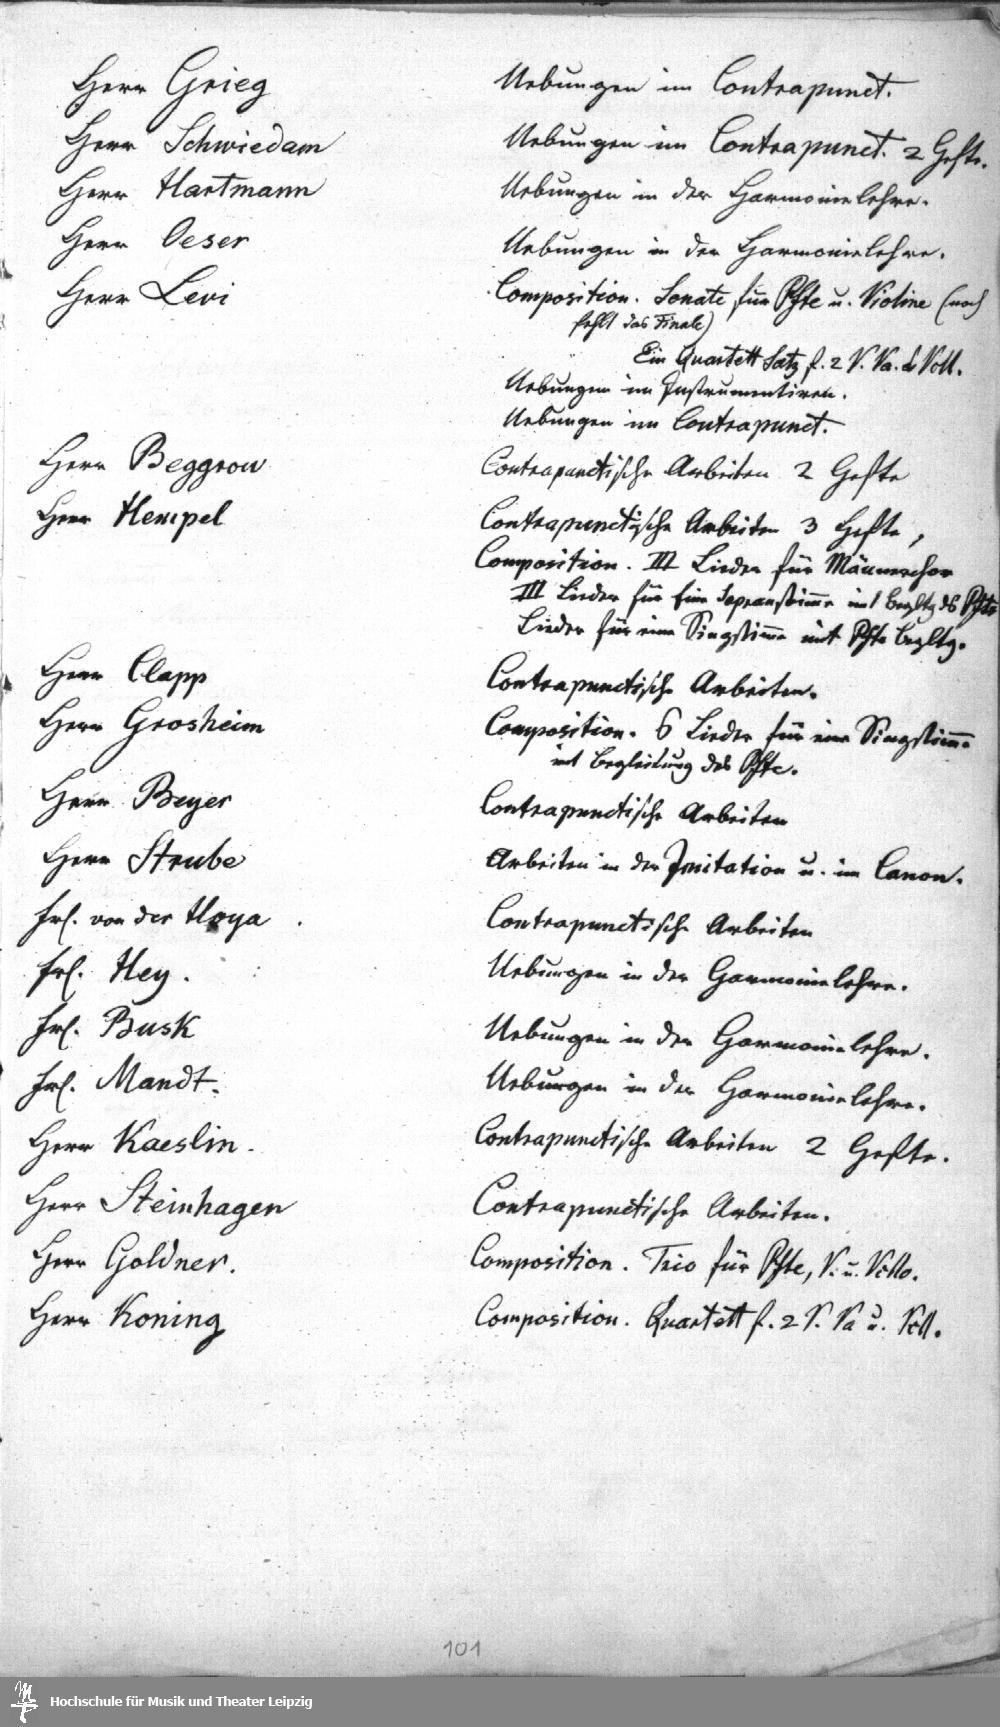 Herr Grieg Uebungen im Contrapunct.
Herr Schwiedam Uebungen im Contrapunct. 2 Hefte.
Herr Hartmann Uebungen in der Harmonielehre.
Herr Oeser Uebungen in der Harmonielehre.
Herr Levi Composition. Sonate für Pfte u. Violine (noch
fehlt das Finale)
Ein Quartett Satz f. 2 V. Va. & Vcll.
Uebungen im Instrumentiren.
Uebungen im Contrapunct.
Herr Beggrow Contrapunctische Arbeiten 2 Hefte
Herr Hempel Contrapunctische Arbeiten 3 Hefte,
Composition. III Lieder für Männerchor
III Lieder für eine Sopranstimme mit Begltg ds Pfte
Lieder für eine Singstimme mit Pfte Begltg.
Herr Clapp Contrapunctische Arbeiten.
Herr Grosheim Composition. 6 Lieder für eine Singstimme
mit Begleitung des Pfte.
Herr Beyer Contrapunctische Arbeiten
Herr Strube Arbeiten in der Imitation u. im Canon.
Frl. von der Hoya Contrapunctische Arbeiten
Frl. Hey. Uebungen in der Harmonielehre.
Frl. Busk Uebungen in der Harmonielehre.
Frl. Mandt. Uebungen in der Harmonielehre.
Herr Kaeslin. Contrapunctische Arbeiten 2 Hefte.
Herr Steinhagen Contrapunctische Arbeiten.
Herr Goldner. Composition. Trio für Pfte, V. u. Vcllo.
Herr Koning Composition. Quartett f. 2 V. Va u. Vcll.
101
Hochschule für Musik und Theater Leipzig